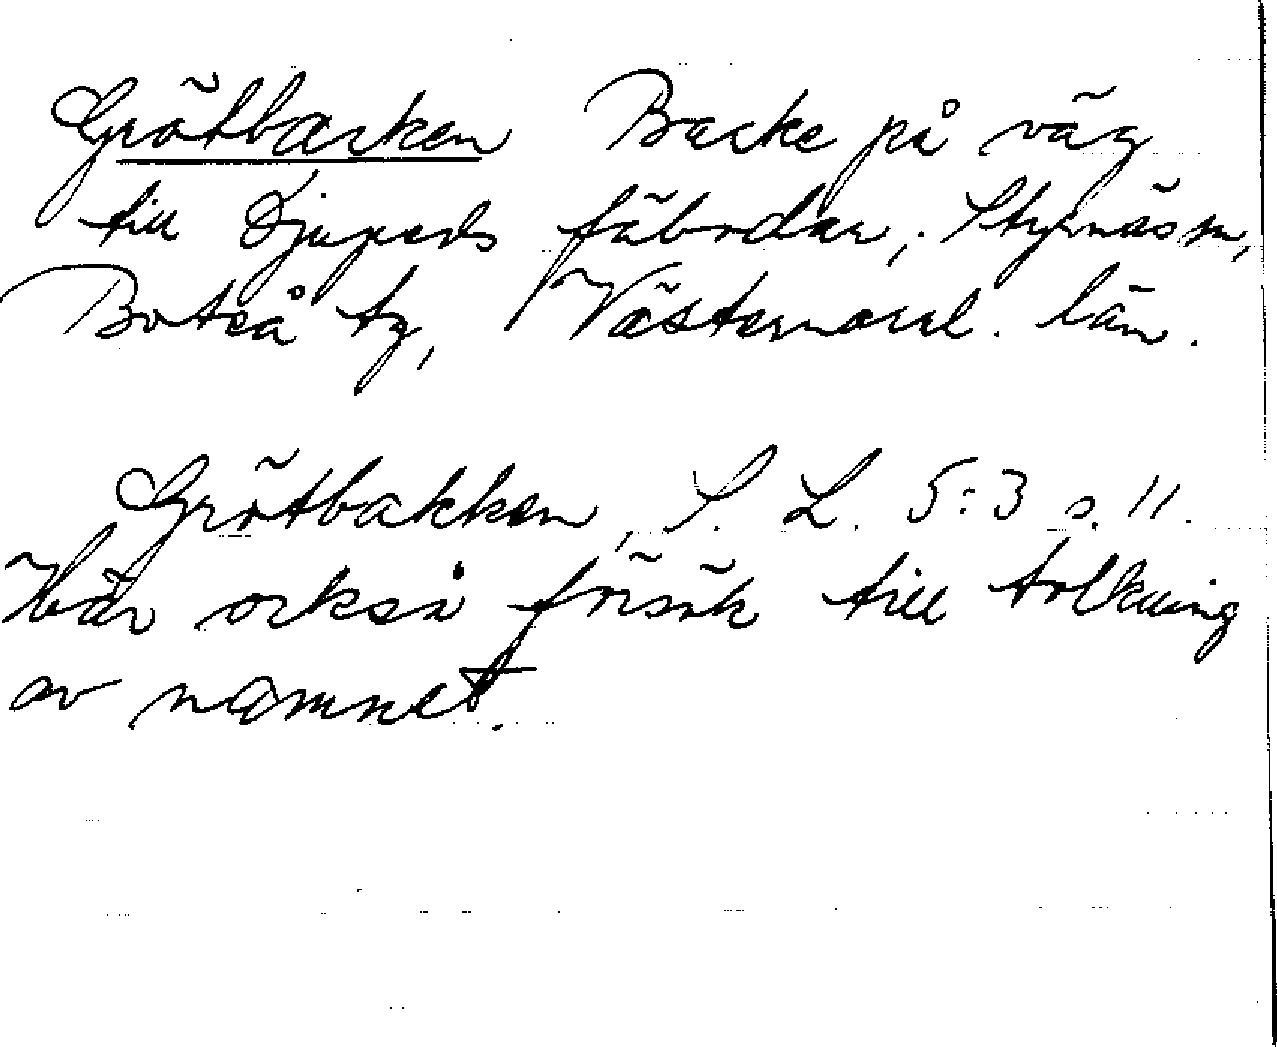 Grötbacken Backe på väg
till Djupeds fäbodar, Styrnäs sn,
Boteå tg, Västernorrl. län.
Grötbakken, S. L. 5:3 s. 11.
Här också försök till tolkning
av namnet.